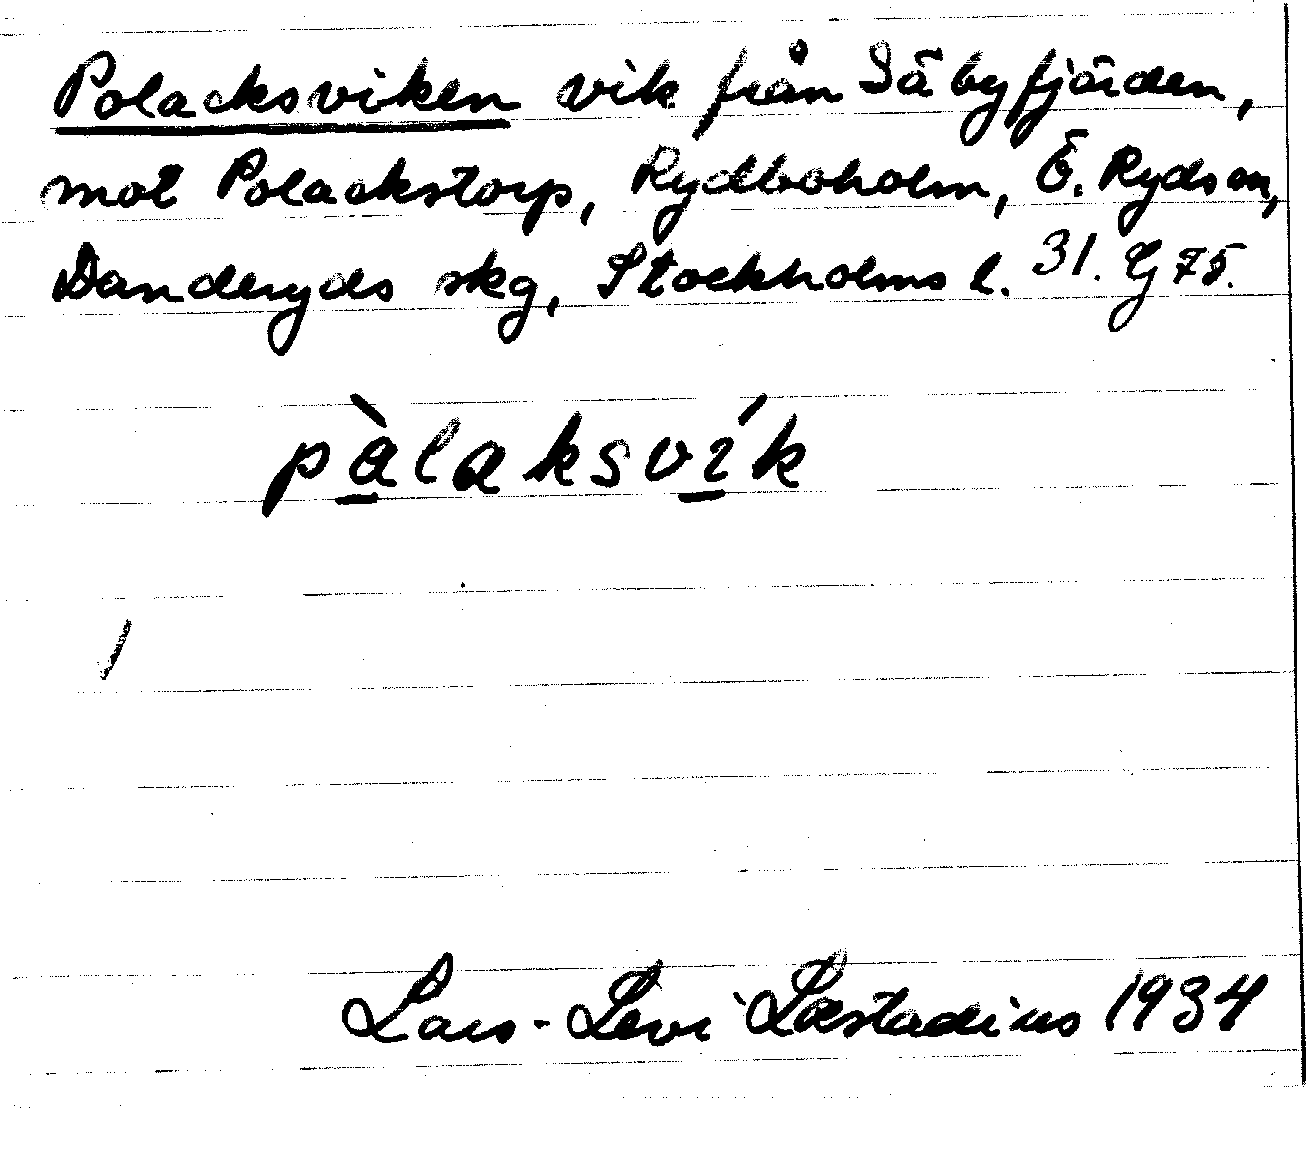 Polacksviken vik från Säbyfjärden,
mot Polackstorp, Rydboholm, Ö. Ryds sn,
Danderyds skg, Stockholms l. 31. G 75.
pàlaksvík
Lars-Levi Læstadius 1934